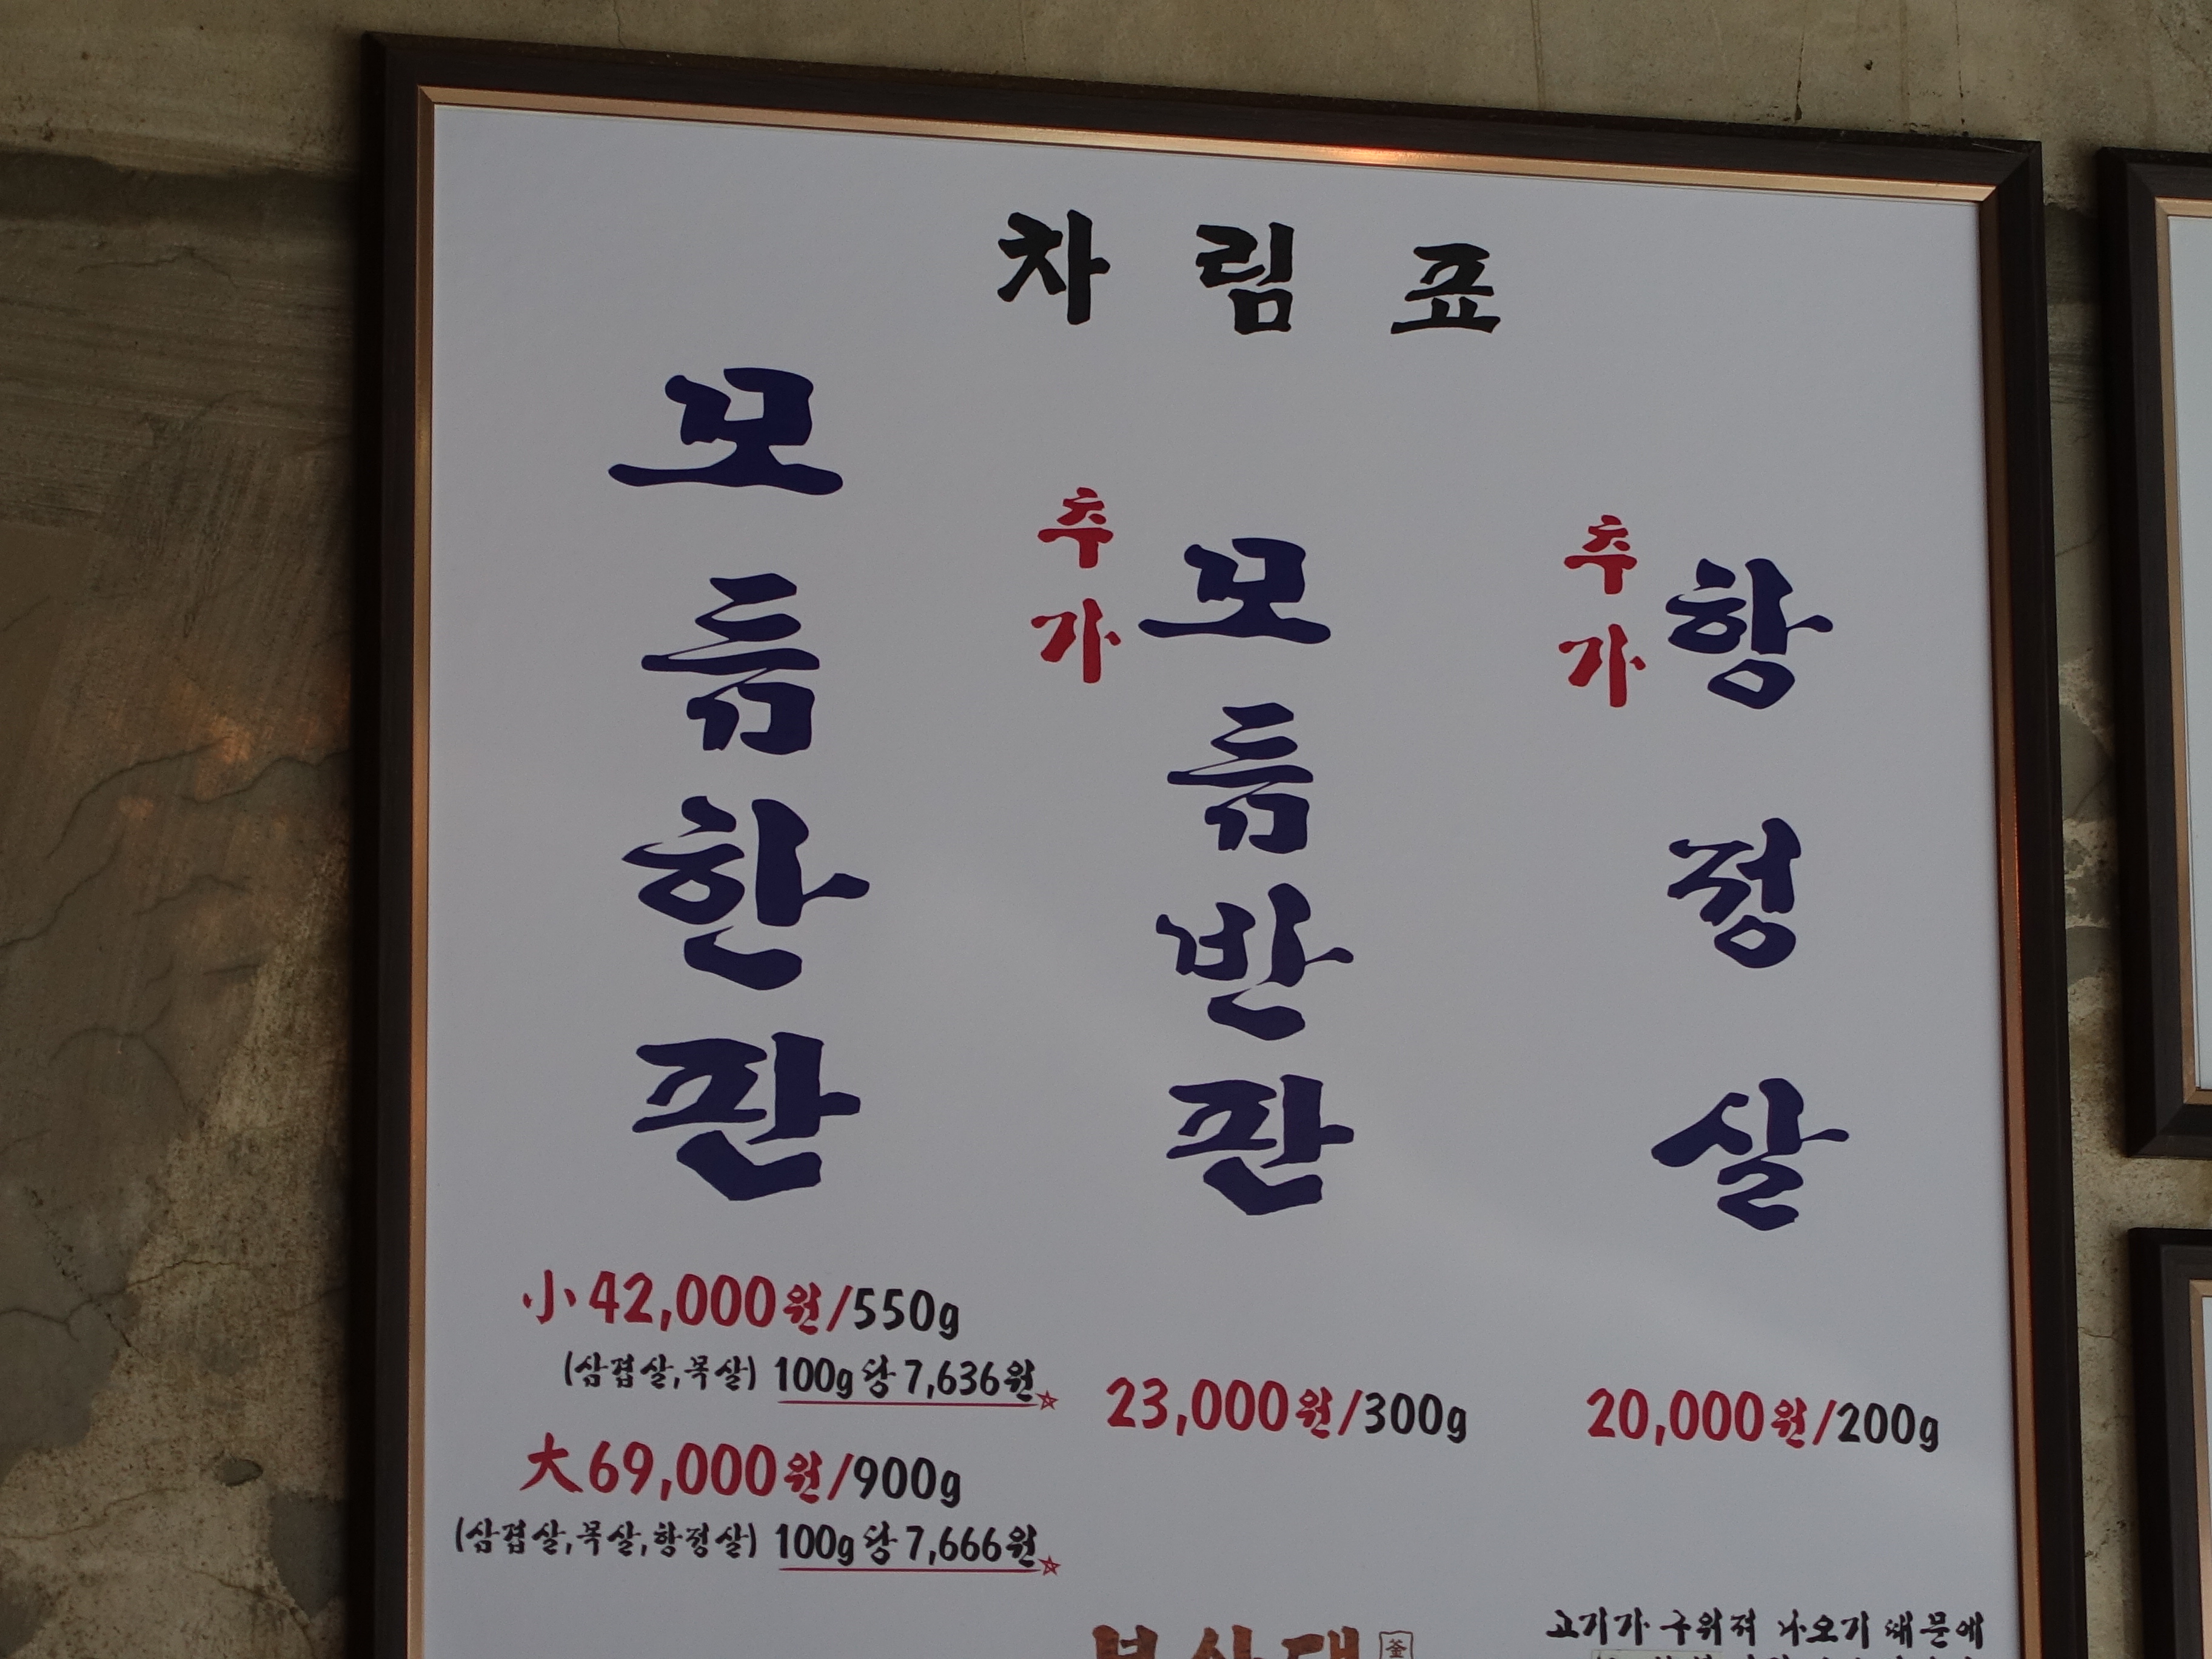 차림표
모듬한판
小 42,000원/550g
(삼겹살,목살) 100g당 7,636원
大 69,000원/900g
(삼겹살,목살,항정살) 100g당 7,666원
추가
모듬반판
23,000원/300g
추가
항정살
20,000원/200g
고기가 구워져 나오기 때문에